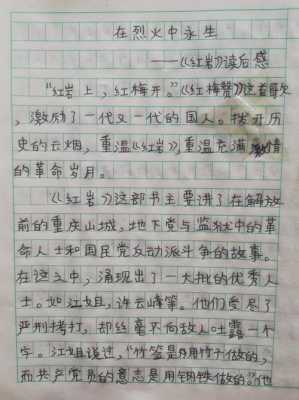 在烈火中永生
——《红岩》读后感
“红岩上,红梅开。”《红梅赞》这首歌
,激励了一代又一代的国人。拨开历
史的云烟,重温《红岩》,重温充满激情
的革命岁月。
《红岩》这部书主要讲了在解放
前的重庆山城,地下党与监狱中的革
命人士和国民党反动派斗争的故事。
在这之中,涌现出了一大批的优秀人
士。如江姐,许云峰等。他们受尽了
严刑拷打,却丝毫不向敌人吐露一个
字。江姐说过,“竹签是用竹子做的,
而共产党员的意志是用钢铁做的。”他